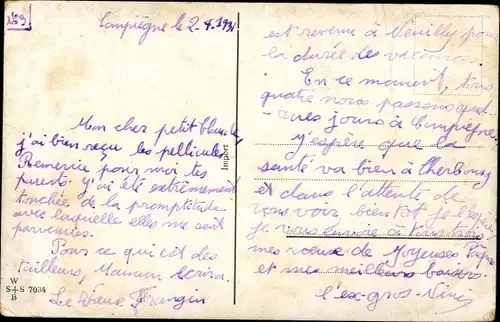 N°9
Compiègne le 2-4.1931
Mon cher petit
j'ai bien reçu les pellicules
Remercie, pour moi tes
parents. j'y ai été extrêmement
touchée de la promptitude
avec laquelle elles me sont
parvenues.
Pour ce qui est des
tailleurs, Maman écrira.
Le Vieux Frangin
W
S+S 7034
B
Import
est revenue à Neuilly pour
la durée des vacances.
En ce moment, tous
quatre nous passons quel-
ques jours à Compiègne
j'espère que la
santé va bien à Cherbourg
et dans l'attente de
vous voir, bientôt je l'espère
je vous envoie à tous
mes vœux de Joyeuses Pâques
et mes meilleurs baisers.
l'ex-gros-